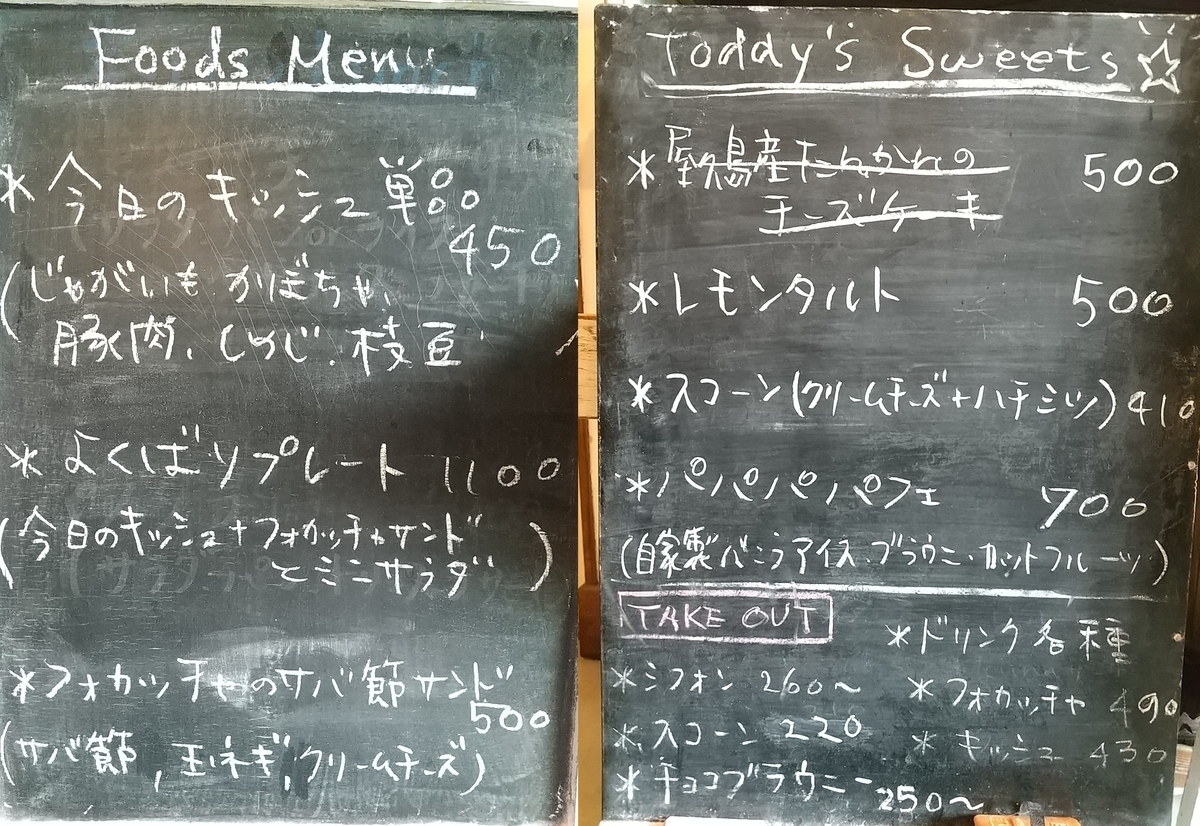 Foods Menu
* 今日のキッシュ 単品
450
(じゃがいも、かぼちゃ、
豚肉、しめじ、枝豆
* よくばりプレート 1100
(今日のキッシュ+フォカッチャサンド
とミニサラダ)
*フォカッチャのサバ節サンド
500
(サバ節, 玉ネギ, クリームチーズ)
Toddy's Sweets☆
* 屋久島産たんかんの 500
チーズケーキ
*レモンタルト 500
*スコーン(クリームチーズ+ハチミツ) 410
*パパパパフェ 700
(自家製バニラアイス・ブラウニー・カットフルーツ)
TAKE OUT
*ドリンク各種
*シフォン 260〜
*フォカッチャ 490
*スコーン 220
* キッシュ 430
*チョコブラウニー 250〜